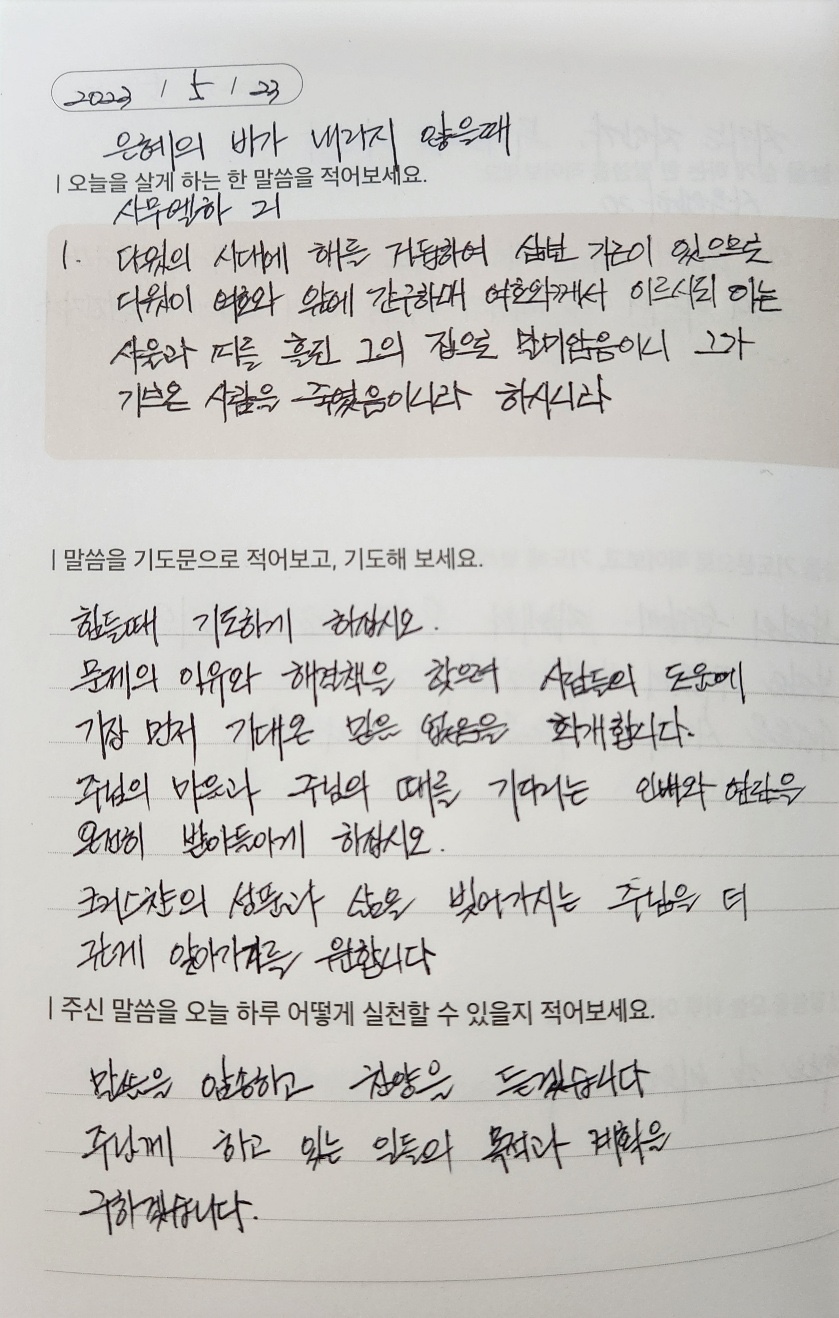 2023 / 5 / 23
은혜의 비가 내리지 않을때
| 오늘을 살게 하는 한 말씀을 적어보세요.
사무엘하 21
1. 다윗의 시대에 해를 거듭하여 삼년 기근이 있으므로
다윗이 여호와 앞에 간구하매 여호와께서 이르시되 이는
사울과 피를 흘린 그의 집으로 말미암음이니 그가
기브온 사람을 죽였음이니라 하시니라
| 말씀을 기도문으로 적어보고, 기도해 보세요.
힘들때 기도하게 하십시오.
문제의 이유와 해결책을 찾으려 사람들의 도움에
가장 먼저 기대온 믿음 없음을 회개합니다.
주님의 마음과 주님의 때를 기다리는 인내와 연단을
온전히 받아들이게 하십시오.
크리스찬의 성품과 삶을 빚어가시는 주님을 더
깊게 알아가기를 원합니다
| 주신 말씀을 오늘 하루 어떻게 실천할 수 있을지 적어보세요.
말씀을 암송하고 찬양을 듣겠습니다
주님께 하고 있는 일들의 목적과 계획을
구하겠습니다.